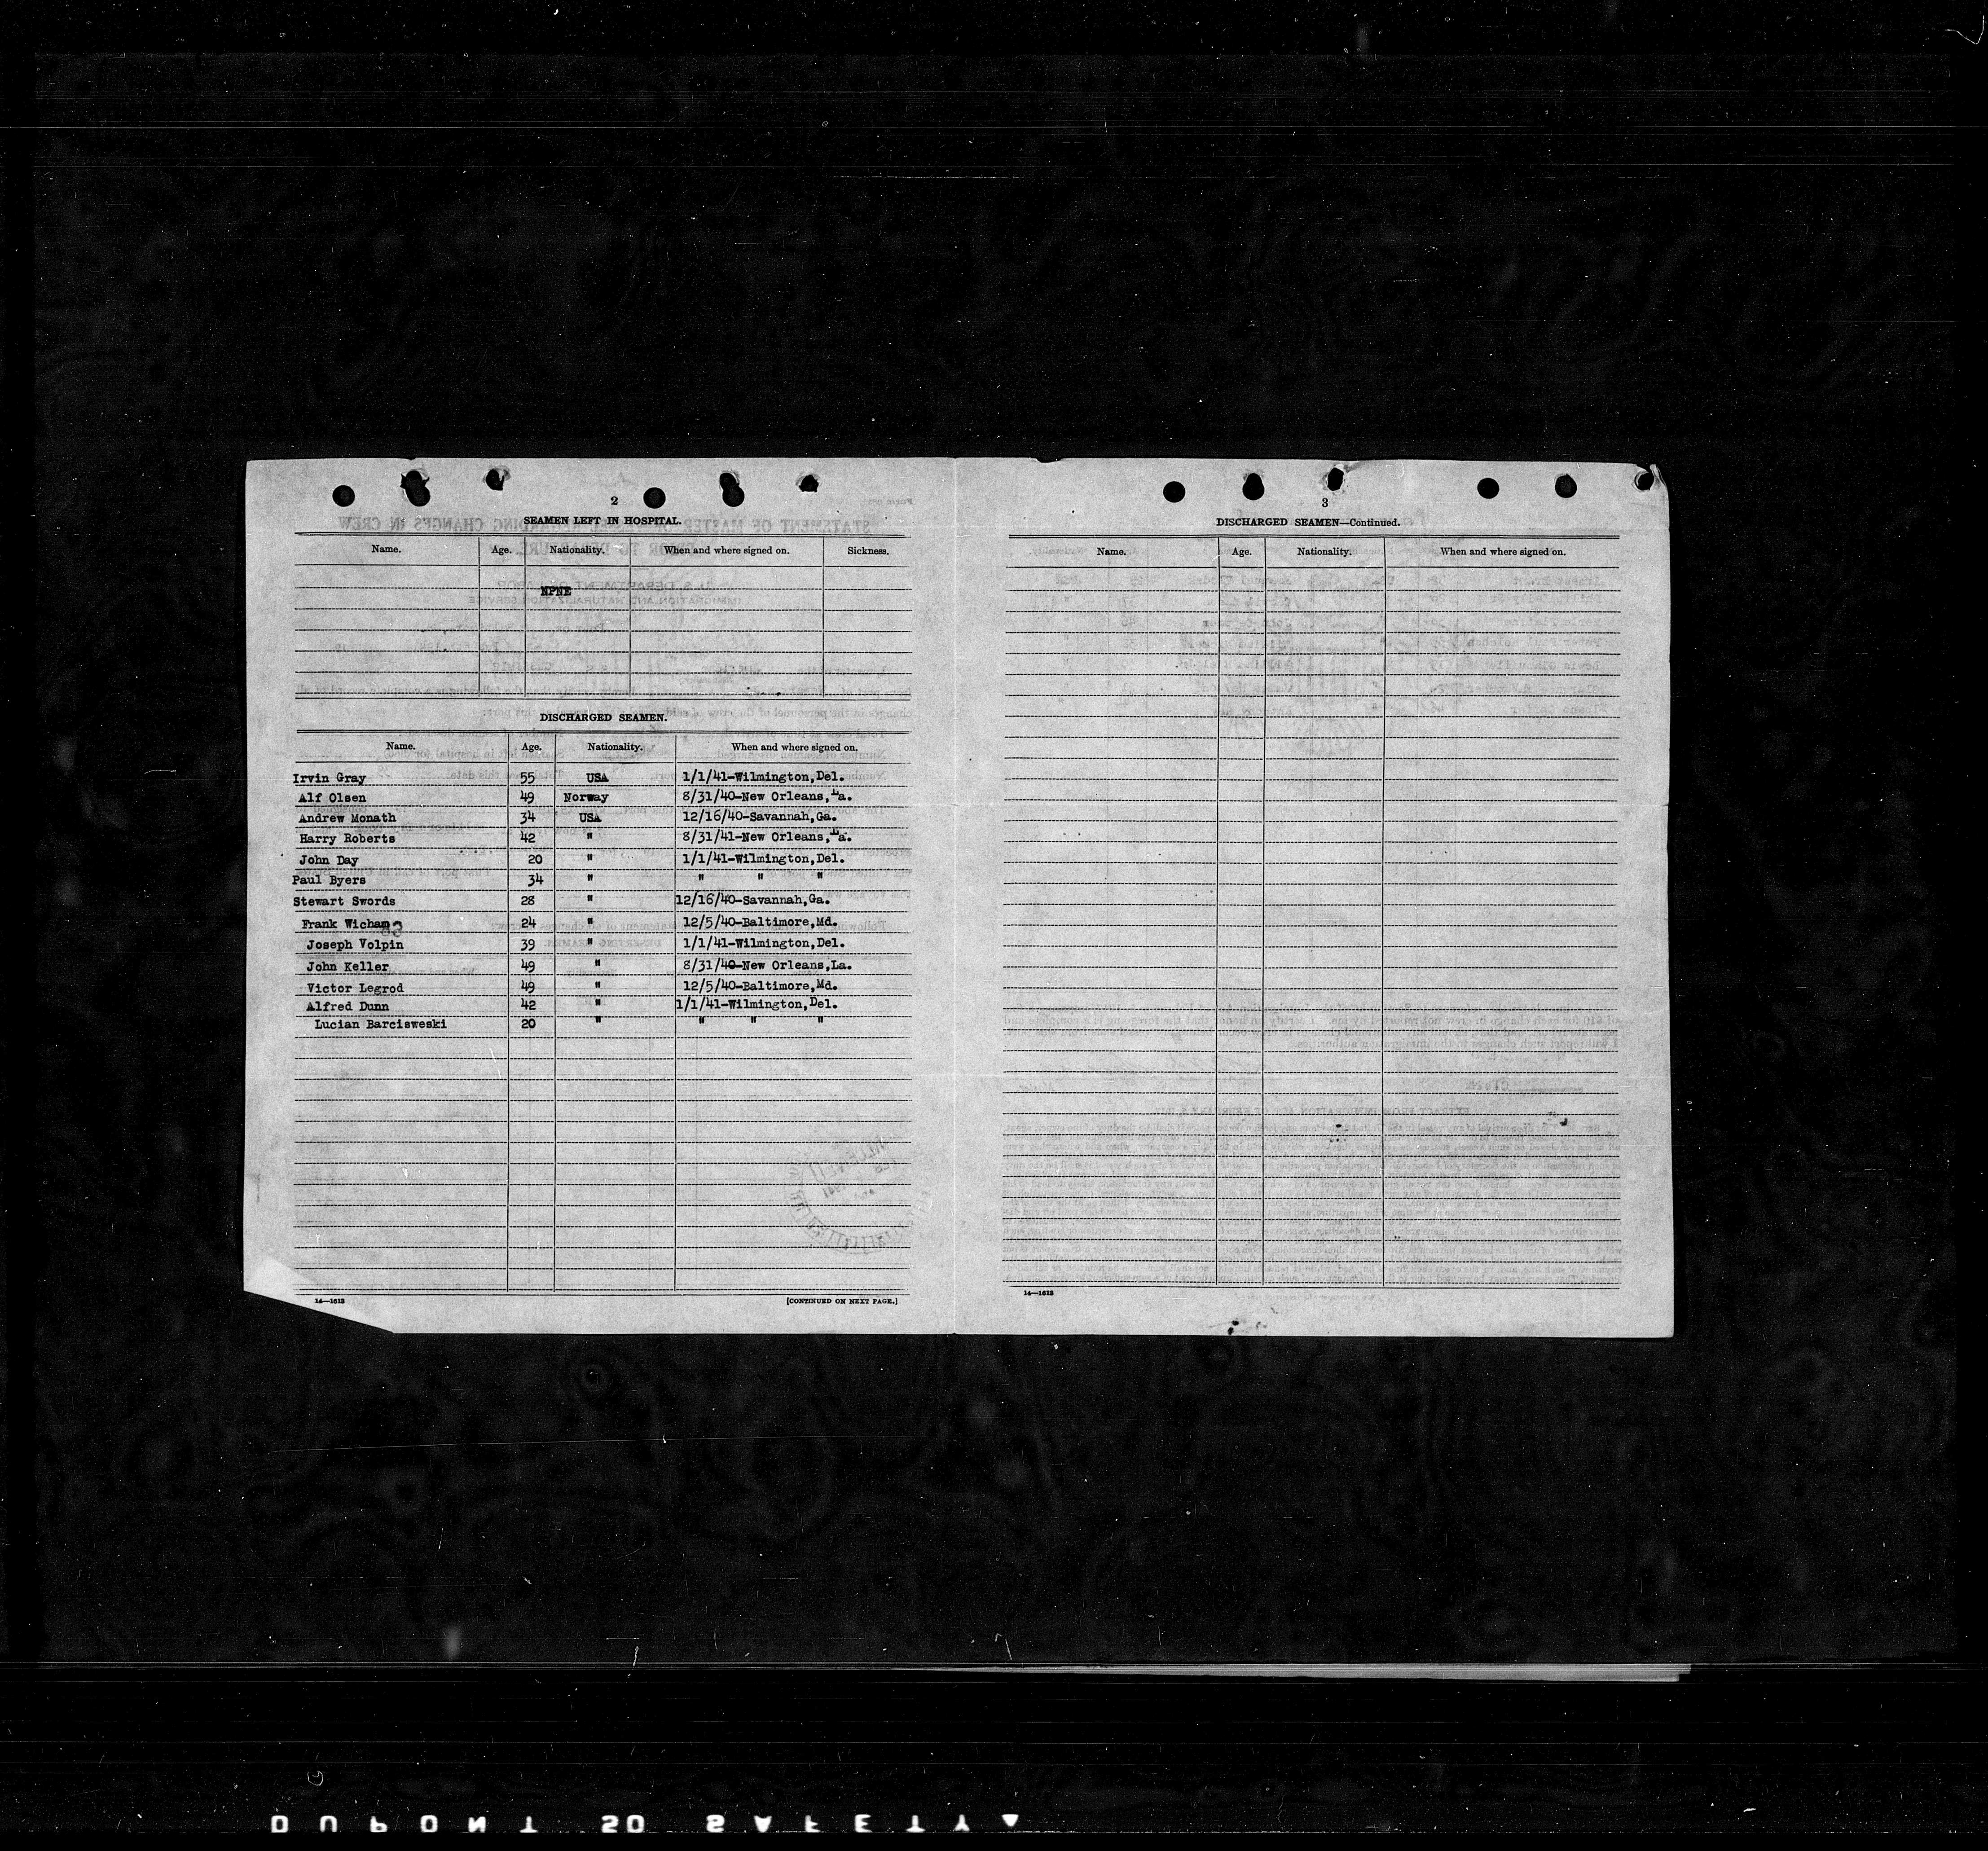 2
SEAMEN LEFT IN HOSPITAL.
Name. Age. Nationality. When and where signed on. Sickness.
NPNE
DISCHARGED SEAMEN.
Name. Age. Nationality. When and where signed on.
Irvin Gray 55 USA 1/1/41-Wilmington,Del.
Alf Olsen 49 Norway 8/31/40-New Orleans,La.
Andrew Monath 34 USA 12/16/40-Savannah,Ga.
Harry Roberts 42 " 8/31/41-New Orleans,La.
John Day 20 " 1/1/41-Wilmington,Del.
Paul Byers 34 " " " "
Stewart Swords 28 " 12/16/40-Savannah,Ga.
Frank Wicham 24 " 12/5/40-Baltimore,Md.
Joseph Volpin 39 " 1/1/41-Wilmington,Del.
John Keller 49 " 8/31/40-New Orleans,La.
Victor Legrod 49 " 12/5/40-Baltimore,Md.
Alfred Dunn 42 " 1/1/41-Wilmington,Del.
Lucian Barcisweski 20 " " " "
14—1613 [CONTINUED ON NEXT PAGE.]
3
DISCHARGED SEAMEN—Continued.
Name. Age. Nationality. When and where signed on.
14—1613
DUPONT SO SAFETY